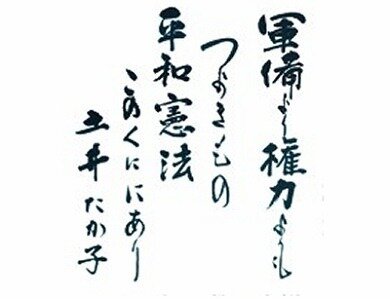 軍備より権力よりも
つよきもの
平和憲法
このくににあり
土井たか子